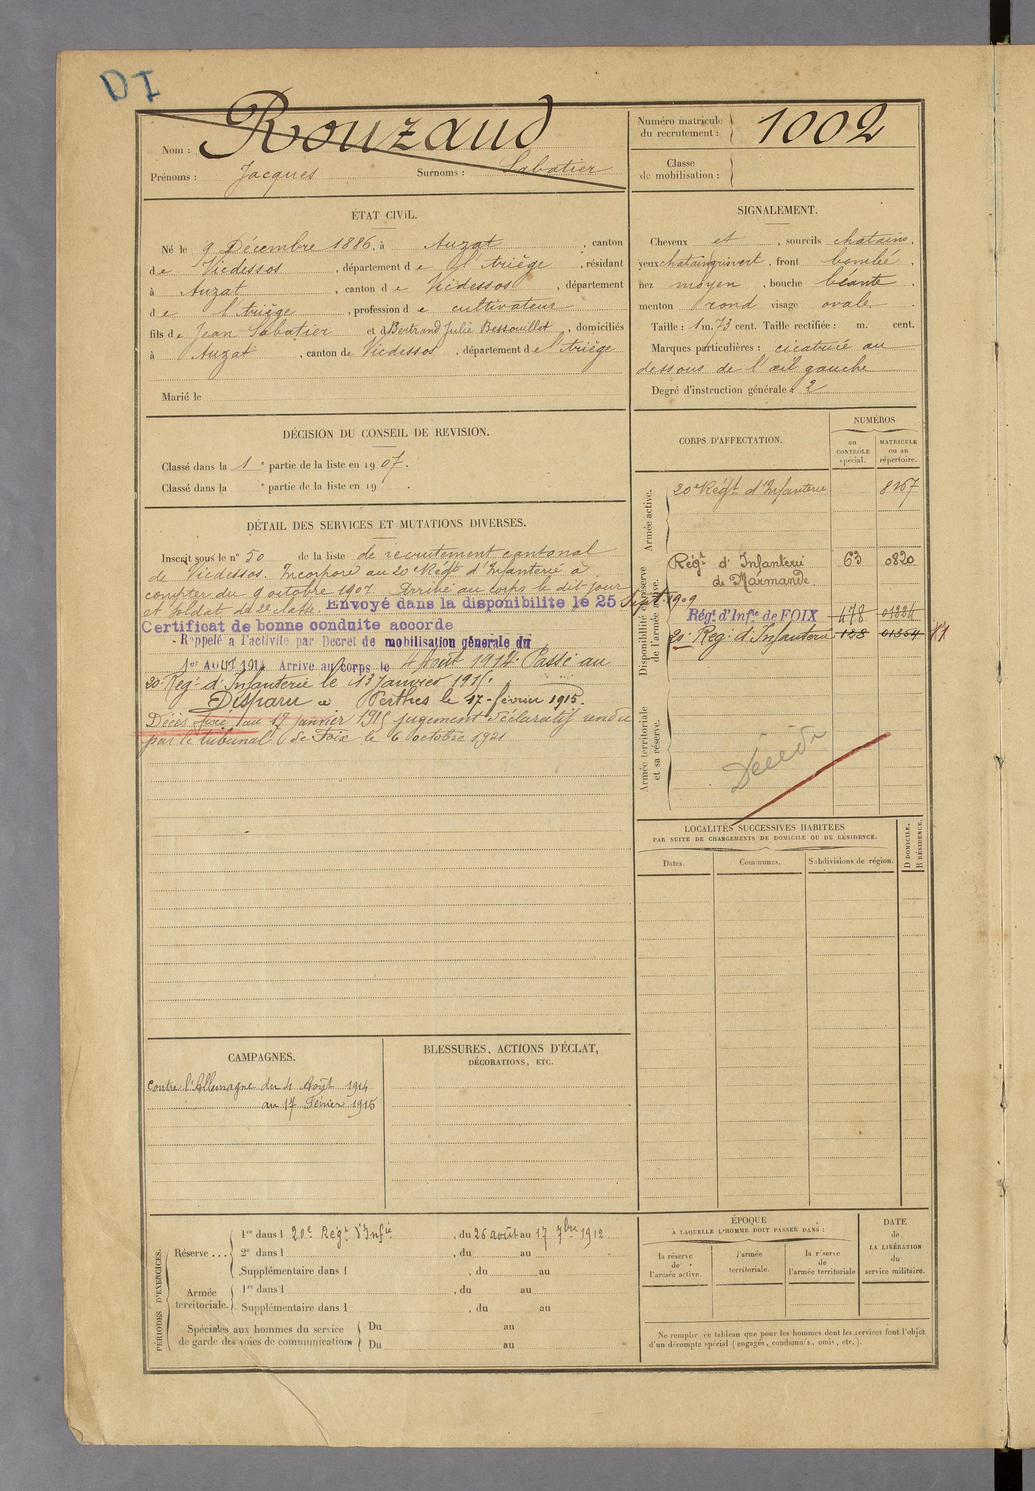 DI
Nom : Rouzaud
Prénoms : Jacques Surnoms : Sabatier
Numéro matricule du recrutement : 1002
Classe de mobilisation :
ÉTAT CIVIL.
Né le 9 Décembre 1886, à Auzat, canton
de Vicdessos, département de l'Ariège, résidant
à Auzat, canton de Vicdessos, département
de l'Ariège, profession de cultivateur
fils de Jean Sabatier et d Bertrand Julie Bessouillot, domiciliés
à Auzat, canton de Vicdessos, département de l'Ariège
Marié le
SIGNALEMENT.
Cheveux et , sourcils chatains,
yeux chatain gris vert, front bombé,
nez moyen, bouche béante,
menton rond visage ovale
Taille : 1 m. 73 cent. Taille rectifiée : m. cent.
Marques particulières : cicatrice au
dessous de l'œil gauche
Degré d'instruction générale : 2
DÉCISION DU CONSEIL DE REVISION.
Classé dans la 1e partie de la liste en 1907.
Classé dans la e partie de la liste en 19 .
DÉTAIL DES SERVICES ET MUTATIONS DIVERSES.
Inscrit sous le n° 50 de la liste de recrutement cantonal
de Vicdessos. Incorporé au 20e Régt d'Infanterie à
compter du 9 octobre 1907. Arrivé au corps le dit jour
et soldat de 2e classe. Envoyé dans la disponibilité le 25 Sept. 1909
Certificat de bonne conduite accordé
Rappelé à l'activité par Décret de mobilisation générale du
1er AOUT 1914 Arrivé au corps le 4 Août 1914. Passé au
20 Reg. d'Infanterie le 13 Janvier 1915.
Disparu à Perthes le 17 février 1915.
Décès fixé au 17 janvier 1915 jugement déclaratif rendu
par le tribunal de Foix le 6 octobre 1921
CORPS D'AFFECTATION.
NUMÉROS
au CONTRÔLE spécial.
MATRICULE ou au répertoire.
Armée active.
20e Régt d'Infanterie
Disponibilité et réserve de l'armée active.
Régt d'Infanterie de Marmande. 63 0820
Régt d'Infie de FOIX 478
20e Reg. d'Infanterie 128 01354
Armée territoriale et sa réserve.
Décédé
LOCALITÉS SUCCESSIVES HABITÉES
PAR SUITE DE CHANGEMENTS DE DOMICILE OU DE RÉSIDENCE.
Dates. Communes. Subdivisions de région. D DOMICILE. R RÉSIDENCE.
CAMPAGNES.
Contre l'Allemagne du 4 Août 1914
au 17 Février 1915
BLESSURES, ACTIONS D'ÉCLAT,
DÉCORATIONS, ETC.
PÉRIODES D'EXERCICES.
Réserve ...
1re dans l 20e Régt d'Infie , du 26 août au 17 7bre 1912
2e dans l , du au
Supplémentaire dans l , du au
Armée territoriale.
1re dans l , du au
Supplémentaire dans l , du au
Spéciales aux hommes du service de garde des voies de communication
Du au
Du au
ÉPOQUE
À LAQUELLE L'HOMME DOIT PASSER DANS :
la réserve de l'armée active.
l'armée territoriale.
la réserve de l'armée territoriale
DATE de LA LIBÉRATION du service militaire.
Ne remplir ce tableau que pour les hommes dont les services font l'objet
d'un décompte spécial (engagés, condamnés, omis, etc.).